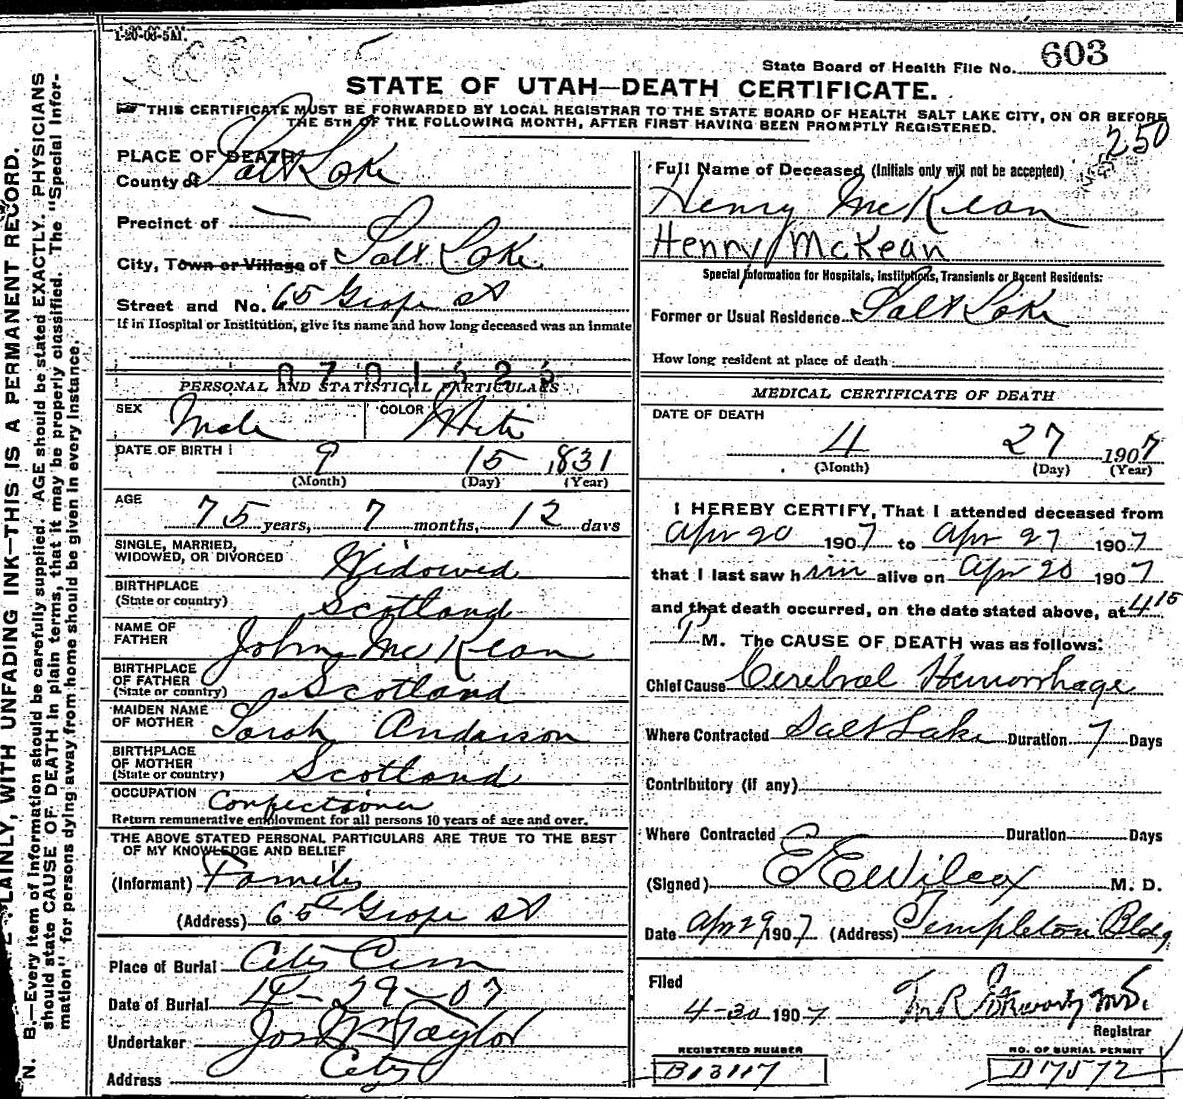 1-20-06-5M.
State Board of Health File No. 603
STATE OF UTAH—DEATH CERTIFICATE.
THIS CERTIFICATE MUST BE FORWARDED BY LOCAL REGISTRAR TO THE STATE BOARD OF HEALTH SALT LAKE CITY, ON OR BEFORE
THE 5TH OF THE FOLLOWING MONTH, AFTER FIRST HAVING BEEN PROMPTLY REGISTERED.
250
PLACE OF DEATH
County of Salt Lake
Precinct of —
City, Town or Village of Salt Lake
Street and No. 65 Grape St
If in Hospital or Institution, give its name and how long deceased was an inmate
PERSONAL AND STATISTICAL PARTICULARS
SEX Male COLOR White
DATE OF BIRTH 9 15 1831
(Month) (Day) (Year)
AGE 75 years, 7 months, 12 days
SINGLE, MARRIED,
WIDOWED, OR DIVORCED Widowed
BIRTHPLACE
(State or country) Scotland
NAME OF
FATHER John McKean
BIRTHPLACE
OF FATHER
(State or country) Scotland
MAIDEN NAME
OF MOTHER Sarah Anderson
BIRTHPLACE
OF MOTHER
(State or country) Scotland
OCCUPATION Confectioner
Return remunerative employment for all persons 10 years of age and over.
THE ABOVE STATED PERSONAL PARTICULARS ARE TRUE TO THE BEST
OF MY KNOWLEDGE AND BELIEF
(Informant) Family
(Address) 65 Grape St
Place of Burial City Cem
Date of Burial 4-29-07
Undertaker Jos Wm Taylor
Address City
Full Name of Deceased (Initials only will not be accepted)
Henry McKean
Henry McKean
Special Information for Hospitals, Institutions, Transients or Recent Residents:
Former or Usual Residence Salt Lake
How long resident at place of death
MEDICAL CERTIFICATE OF DEATH
DATE OF DEATH
4 27 1907
(Month) (Day) (Year)
I HEREBY CERTIFY, That I attended deceased from
Apr 20 1907 to Apr 27 1907
that I last saw him alive on Apr 20 1907
and that death occurred, on the date stated above, at 4 15
P M. The CAUSE OF DEATH was as follows:
Chief Cause Cerebral Hemorrhage
Where Contracted Salt Lake Duration 7 Days
Contributory (if any)
Where Contracted Duration Days
(Signed) E E Wilcox M. D.
Date Apr 29 1907 (Address) Templeton Bldg
Filed
4-30 1907 M.D.
Registrar
REGISTERED NUMBER
B13117
NO. OF BURIAL PERMIT
D17572
PLAINLY, WITH UNFADING INK—THIS IS A PERMANENT RECORD.
N. B.—Every item of information should be carefully supplied. AGE should be stated EXACTLY. PHYSICIANS
should state CAUSE OF DEATH in plain terms, that it may be properly classified. The "Special Infor-
mation" for persons dying away from home should be given in every instance.